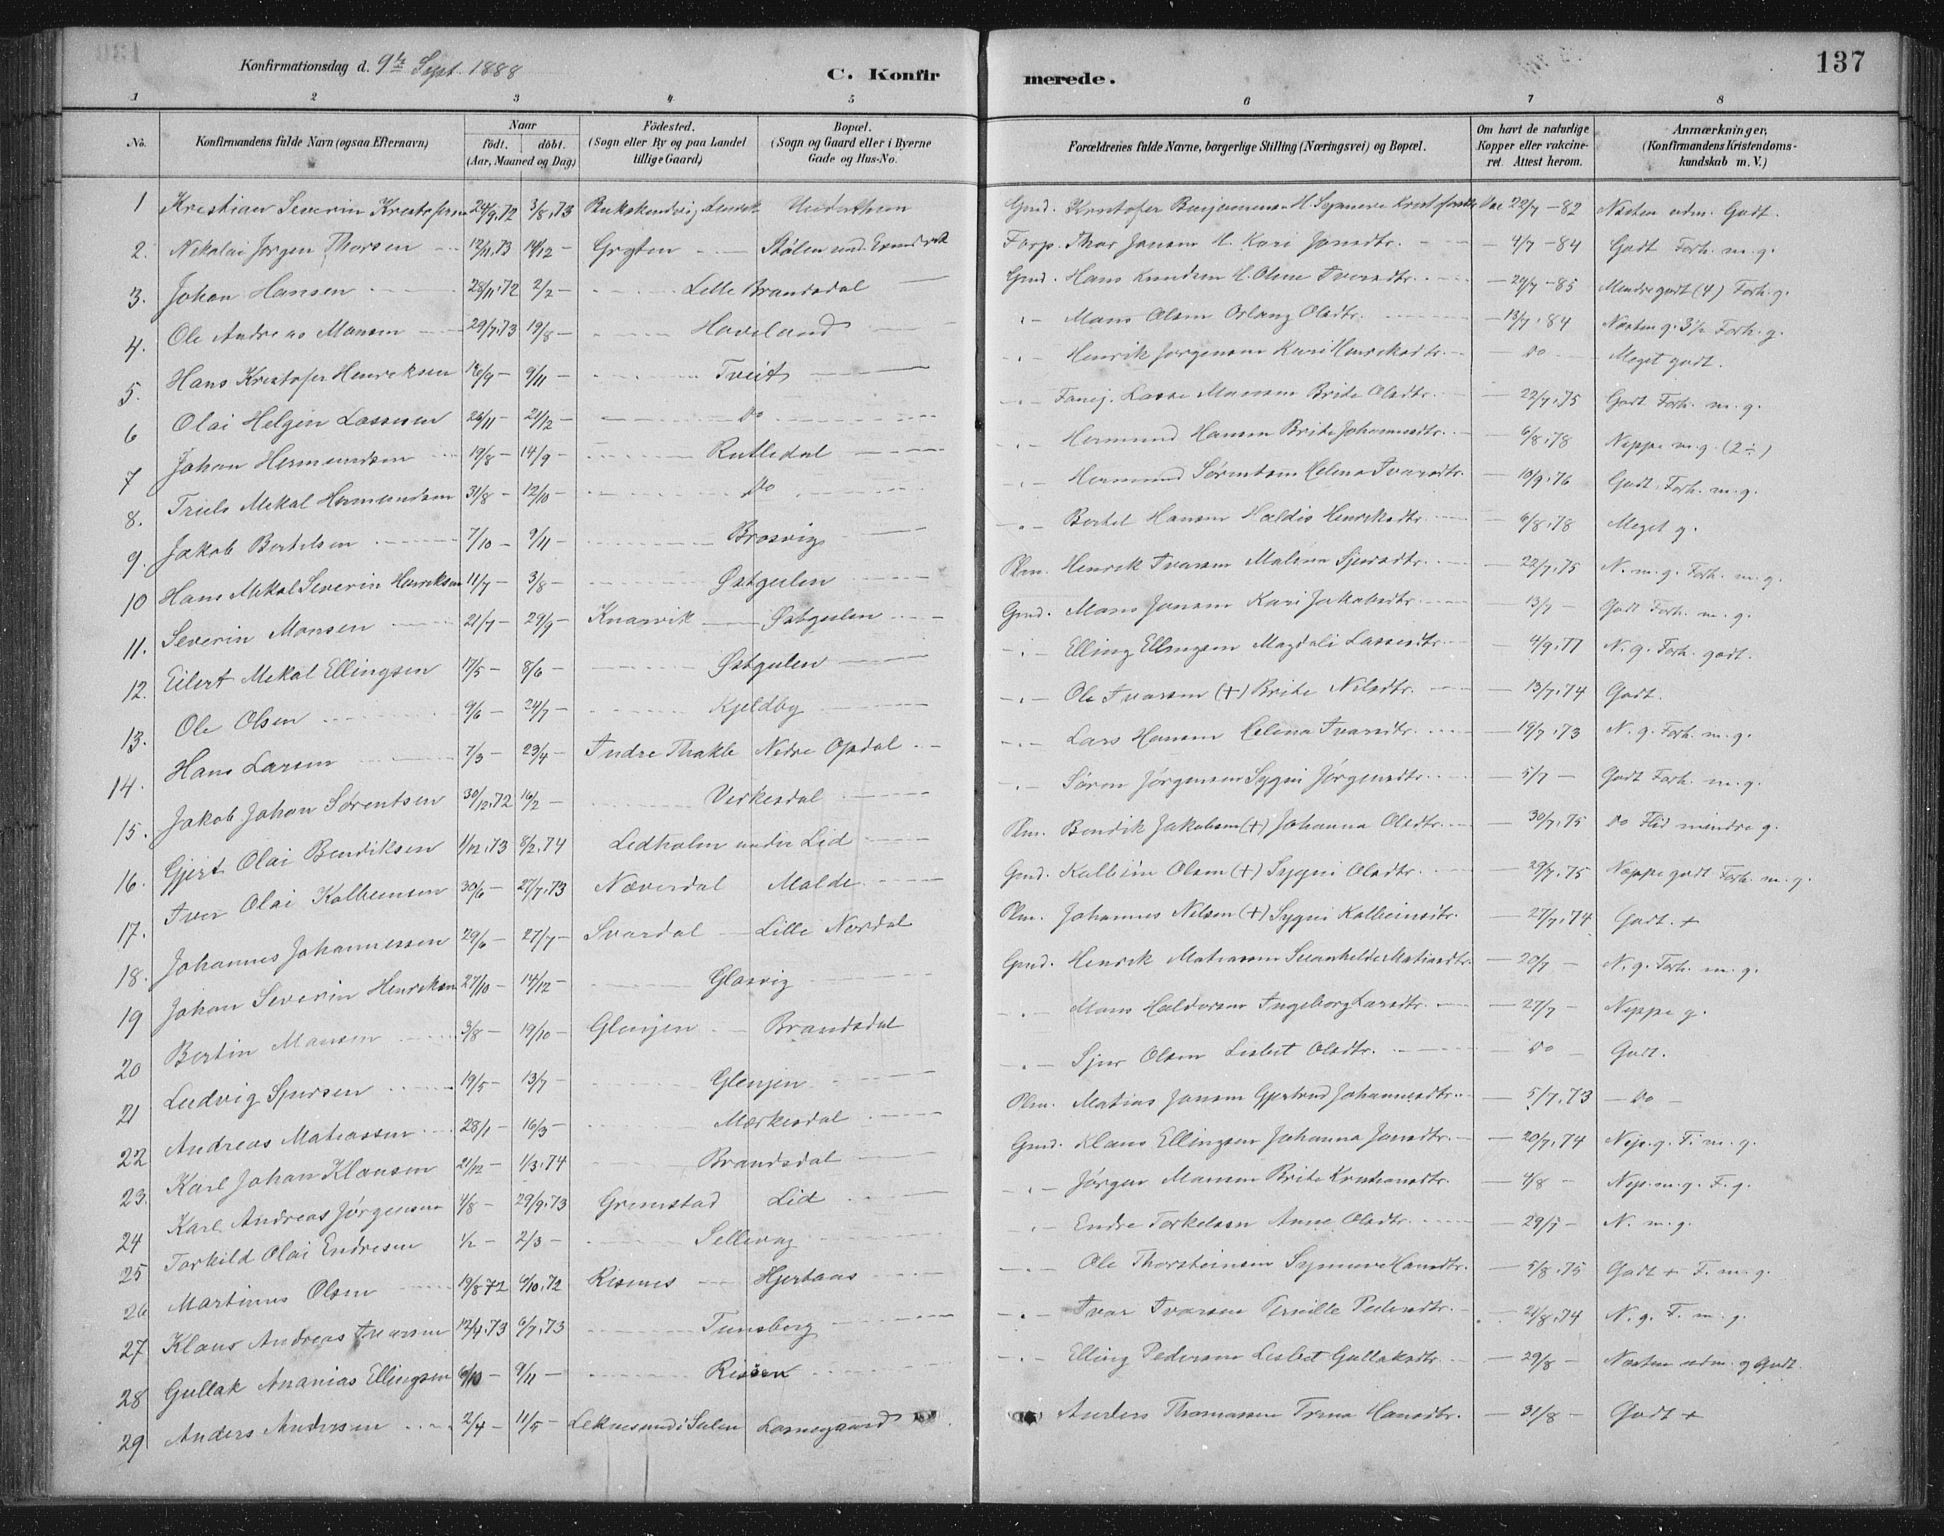 137
Konfirmationsdag d. 9de Sept. 1888
C. Konfirmerede.
1 2 3 4 5 6 7 8
No. Konfirmandens fulde Navn (ogsaa Efternavn) Naar født. døbt. (Aar, Maaned og Dag) Fødested. (Sogn eller By og paa Landet tillige Gaard) Bopæl. (Sogn og Gaard eller i Byerne Gade og Hus-No. Forældrenes fulde Navne, borgerlige Stilling (Næringsvei) og Bopæl. Om havt de naturlige Kopper eller vakcineret. Attest herom. Anmærkninger, (Konfirmandens Kristendomskundskab m. V.)
1 Kristian Severin Kristofersen 24/9.72 3/8.73 Gmd. Kristofer 22/7-82 Næsten udm. Godt.
2. Nikolai Jørgen Thorsen 12/11.73 14/12 - Grytten Stølen und. Forp. Thor Jansen H. Kari Jansdtr. - 4/7 - 84 Godt Forh. m. g.
3. Johan Hansen 28/11.72 2/2 - Lille Brandsdal Gmd. Hans Knudsen H. Oline Ivarsdtr. - 29/7 - 85 Mindre godt (4) Forh. g.
4. Ole Andreas Monsen 29/7.73 19/8 - Haveland Mons Olsen Olsdtr. - 13/7.84 Næsten g. 3½ Forh. g.
5. Hans Kristofer Henriksen 16/9 - 9/11 - Tveit Henrik Jørgensen Kari Henriksdtr. - Do Meget godt.
6 Olai Helgin Lassesen 26/11 - 21/12 - Do Lasse Monsen Brite Olsdtr. - 22/7.75 Godt Forh. m. g.
7 Johan Hermundsen 19/8 - 14/9 - Rutledal Hermund Hansen Brite Johannesdtr. - 6/8.78 Neppe m. g. (2÷)
8. Troels Mekal Hermundsen 31/8 - 12/10 - Do Hermund Sørentsen Helena Ivarsdtr. - 10/9.76 Godt. Forh. m. g.
9. Jakob Bertelsen 7/10 - 9/11 - Brosvig Bertel Hansen Haldis Henriksdtr. - 6/8.78 Meget g.
10 Hans Mekal Severin Henriksen 11/7 - 3/8 - Østgulen Plm. Henrik Ivarsen Malina Sjursdtr. - 22/7.75 N. m. g. Forh. m. g.
11. Severin Monsen 21/7 - 29/9 - Knarvik Østgulen Gmd. Mons Jansen Kari Jakobsdtr. - 13/7 - Godt Forh. m. g.
12. Eilert Mekal Ellingsen 17/5 - 8/6 - Østgulen Elling Ellingsen Magdali Lassesdtr. - 4/9.77 N. g. Forh. godt.
13. Ole Olsen 9/6 - 24/7 - Kjeldby Ole Ivarsen (+) Brite Nilsdtr. - 13/7.74 Godt.
14. Hans Larsen 7/3 - 23/4 - Indre Thakle Nedre Opdal Lars Hansen Helina Ivarsdtr. - 19/7.73 N. g. Forh. m. g.
15. Jakob Johan Sørentsen 30/12.72 16/2 - Virkesdal Søren Jørgensen Sygni Jørgensdtr. - 5/7 - Godt Forh. m. g.
16. Gjert Olai Bendiksen 1/12.73 8/2.74 Lidholm under Lid Plm. Bendik Jakobsen (+) Johanna Olsdtr. - 30/7.75 Do Flid mindre g.
17. Iver Olai Kolbeinsen 30/6 - 27/7.73 Næverdal Molde Gmd. Kolbein Olsen (+) Sygni Olsdtr. - 29/7.75 Neppe godt Forh. m. g.
18. Johannes Johannessen 29/6 - 27/7 - Svardal Lille Nordal Plm. Johannes Nilsen (+) Sygni Kolbeinsdtr. - 27/7.74 Godt. +
19 Johan Severin Henriksen 27/10 - 14/12 - Glosvig Gmd. Henrik Matiasen Svanhilde Matiasdtr. - 20/7 - N. g. Forh. m. g.
20 Bertin Monsen 3/8 - 19/10 - Glenjen Brandsdal Mons Haldorsen Ingeborg Larsdtr. - 27/7 - Neppe g.
21 Ludvig Sjursen 19/5 - 13/7 - Glenjen Sjur Olsen Lisbet Olsdtr. - Do - Godt.
22 Andreas Matiassen 28/1 - 16/3 - Mærkesdal Plm. Matias Jansen Gjertrud Johannesdtr. - 5/7.73 - Do -
23. Karl Johan Klausen 21/12 - 1/3.74 Brandsdal Gmd. Klaus Ellingsen Johanna Jonsdtr. - 20/7.74 Nep. g. F. m. g.
24 Karl Andreas Jørgensen 4/8 - 29/9.73 Grimstad Lid Jørgen Monsen Brite Kristiansdtr. - 4/8 - Nep. m. g. F. g.
25 Torkild Olai Endresen 1/2 - 2/3 - Sellevag Endre Torkelsen Anne Olsdtr. - 29/7 - N. m. g.
26 Martinus Olsen 19/8 72 6/10.72 Risnes Hjertaas Ole Thorsteinsen Synneve Hansdtr. - 5/8.75 Godt + F. m. g.
27 Klaus Andreas Ivarsen 12/4.73 6/7.73 Tunsberg Ivar Ivarsen Pernille Pedersdtr. - 21/8.74 N. g. F. m. g.
28 Gullak Ananias Ellingsen 6/10 - 9/11 - Risøen Elling Pedersen Lisbet Gullaksdtr. - 29/8 - Næsten udm. g Godt.
29 Anders Andersen 2/4 - 11/5 - i Sulen Anders Thomassen Trina Hansdtr. - 31/8 - Godt +